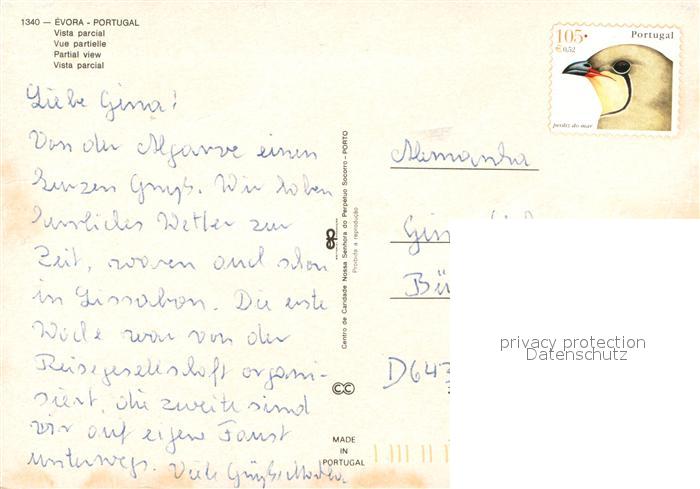 1340 — ÉVORA - PORTUGAL
Vista parcial
Vue partielle
Partial view
Vista parcial
105•
€ 0,52
Portugal
perdiz do mar
Liebe Gina!
Von der Algarve einen
kurzen Gruß. Wir haben
herrliches Wetter zur
Zeit, waren auch schon
in Lissabon. Die erste
Woche war von der
Reisegesellschaft organi-
siert, die zweite sind
wir auf eigene Faust
unterwegs. Viele Grüße
ep
Centro de Caridade Nossa Senhora do Perpétuo Socorro - PORTO
Proibida a reprodução
CC
MADE
IN
PORTUGAL
Alemanha
Gin
Bü
D643
privacy protection
Datenschutz